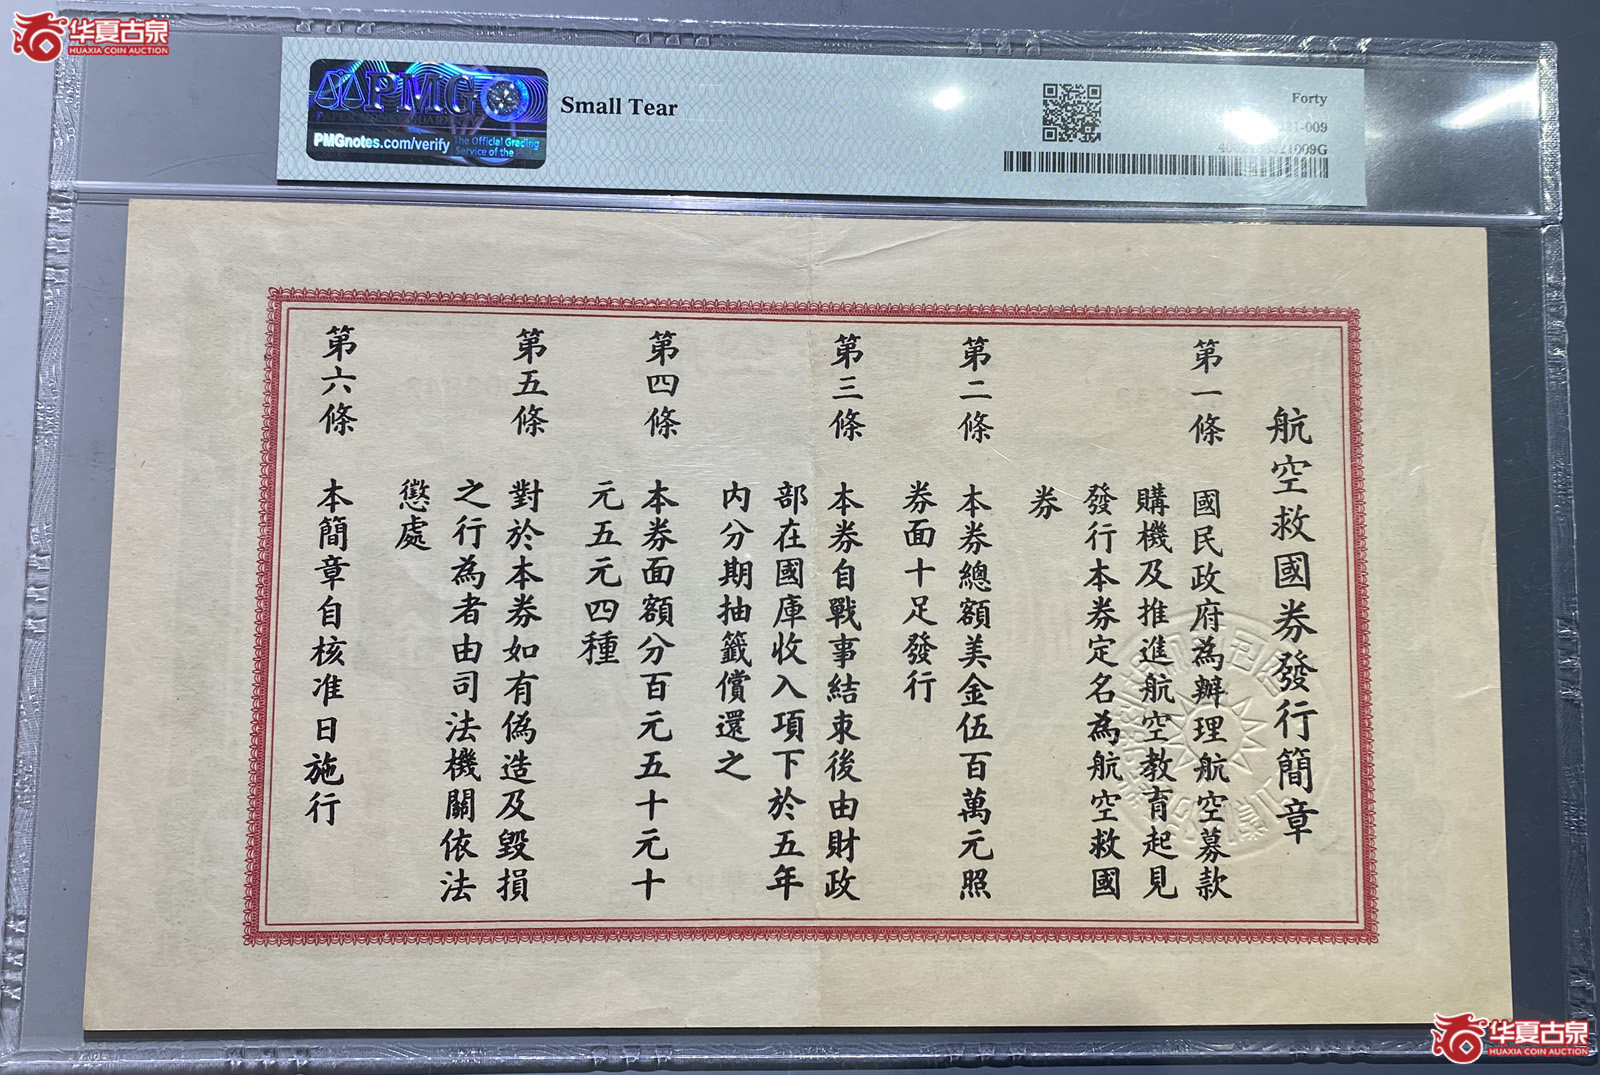 华夏古泉
HUAXIA COIN AUCTION
PMG
PMGnotes.com/verify
The Official Grading
Service of the
Small Tear
Forty
航空救國券發行簡章
第一條 國民政府為辦理航空募款
購機及推進航空教育起見
發行本券定名為航空救國
券
第二條 本券總額美金伍百萬元照
券面十足發行
第三條 本券自戰事結束後由財政
部在國庫收入項下於五年
內分期抽籤償還之
第四條 本券面額分百元五十元十
元五元四種
第五條 對於本券如有偽造及毀損
之行為者由司法機關依法
懲處
第六條 本簡章自核准日施行
华夏古泉
HUAXIA COIN AUCTION